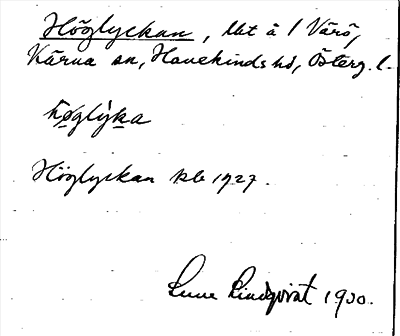 Höglyckan, lht å 1 Värö,
Kärna sn, Hanekinds hd, Österg. l.
hø̄glỳka
Höglyckan kb 1927.
Sune Lindqvist 1930.